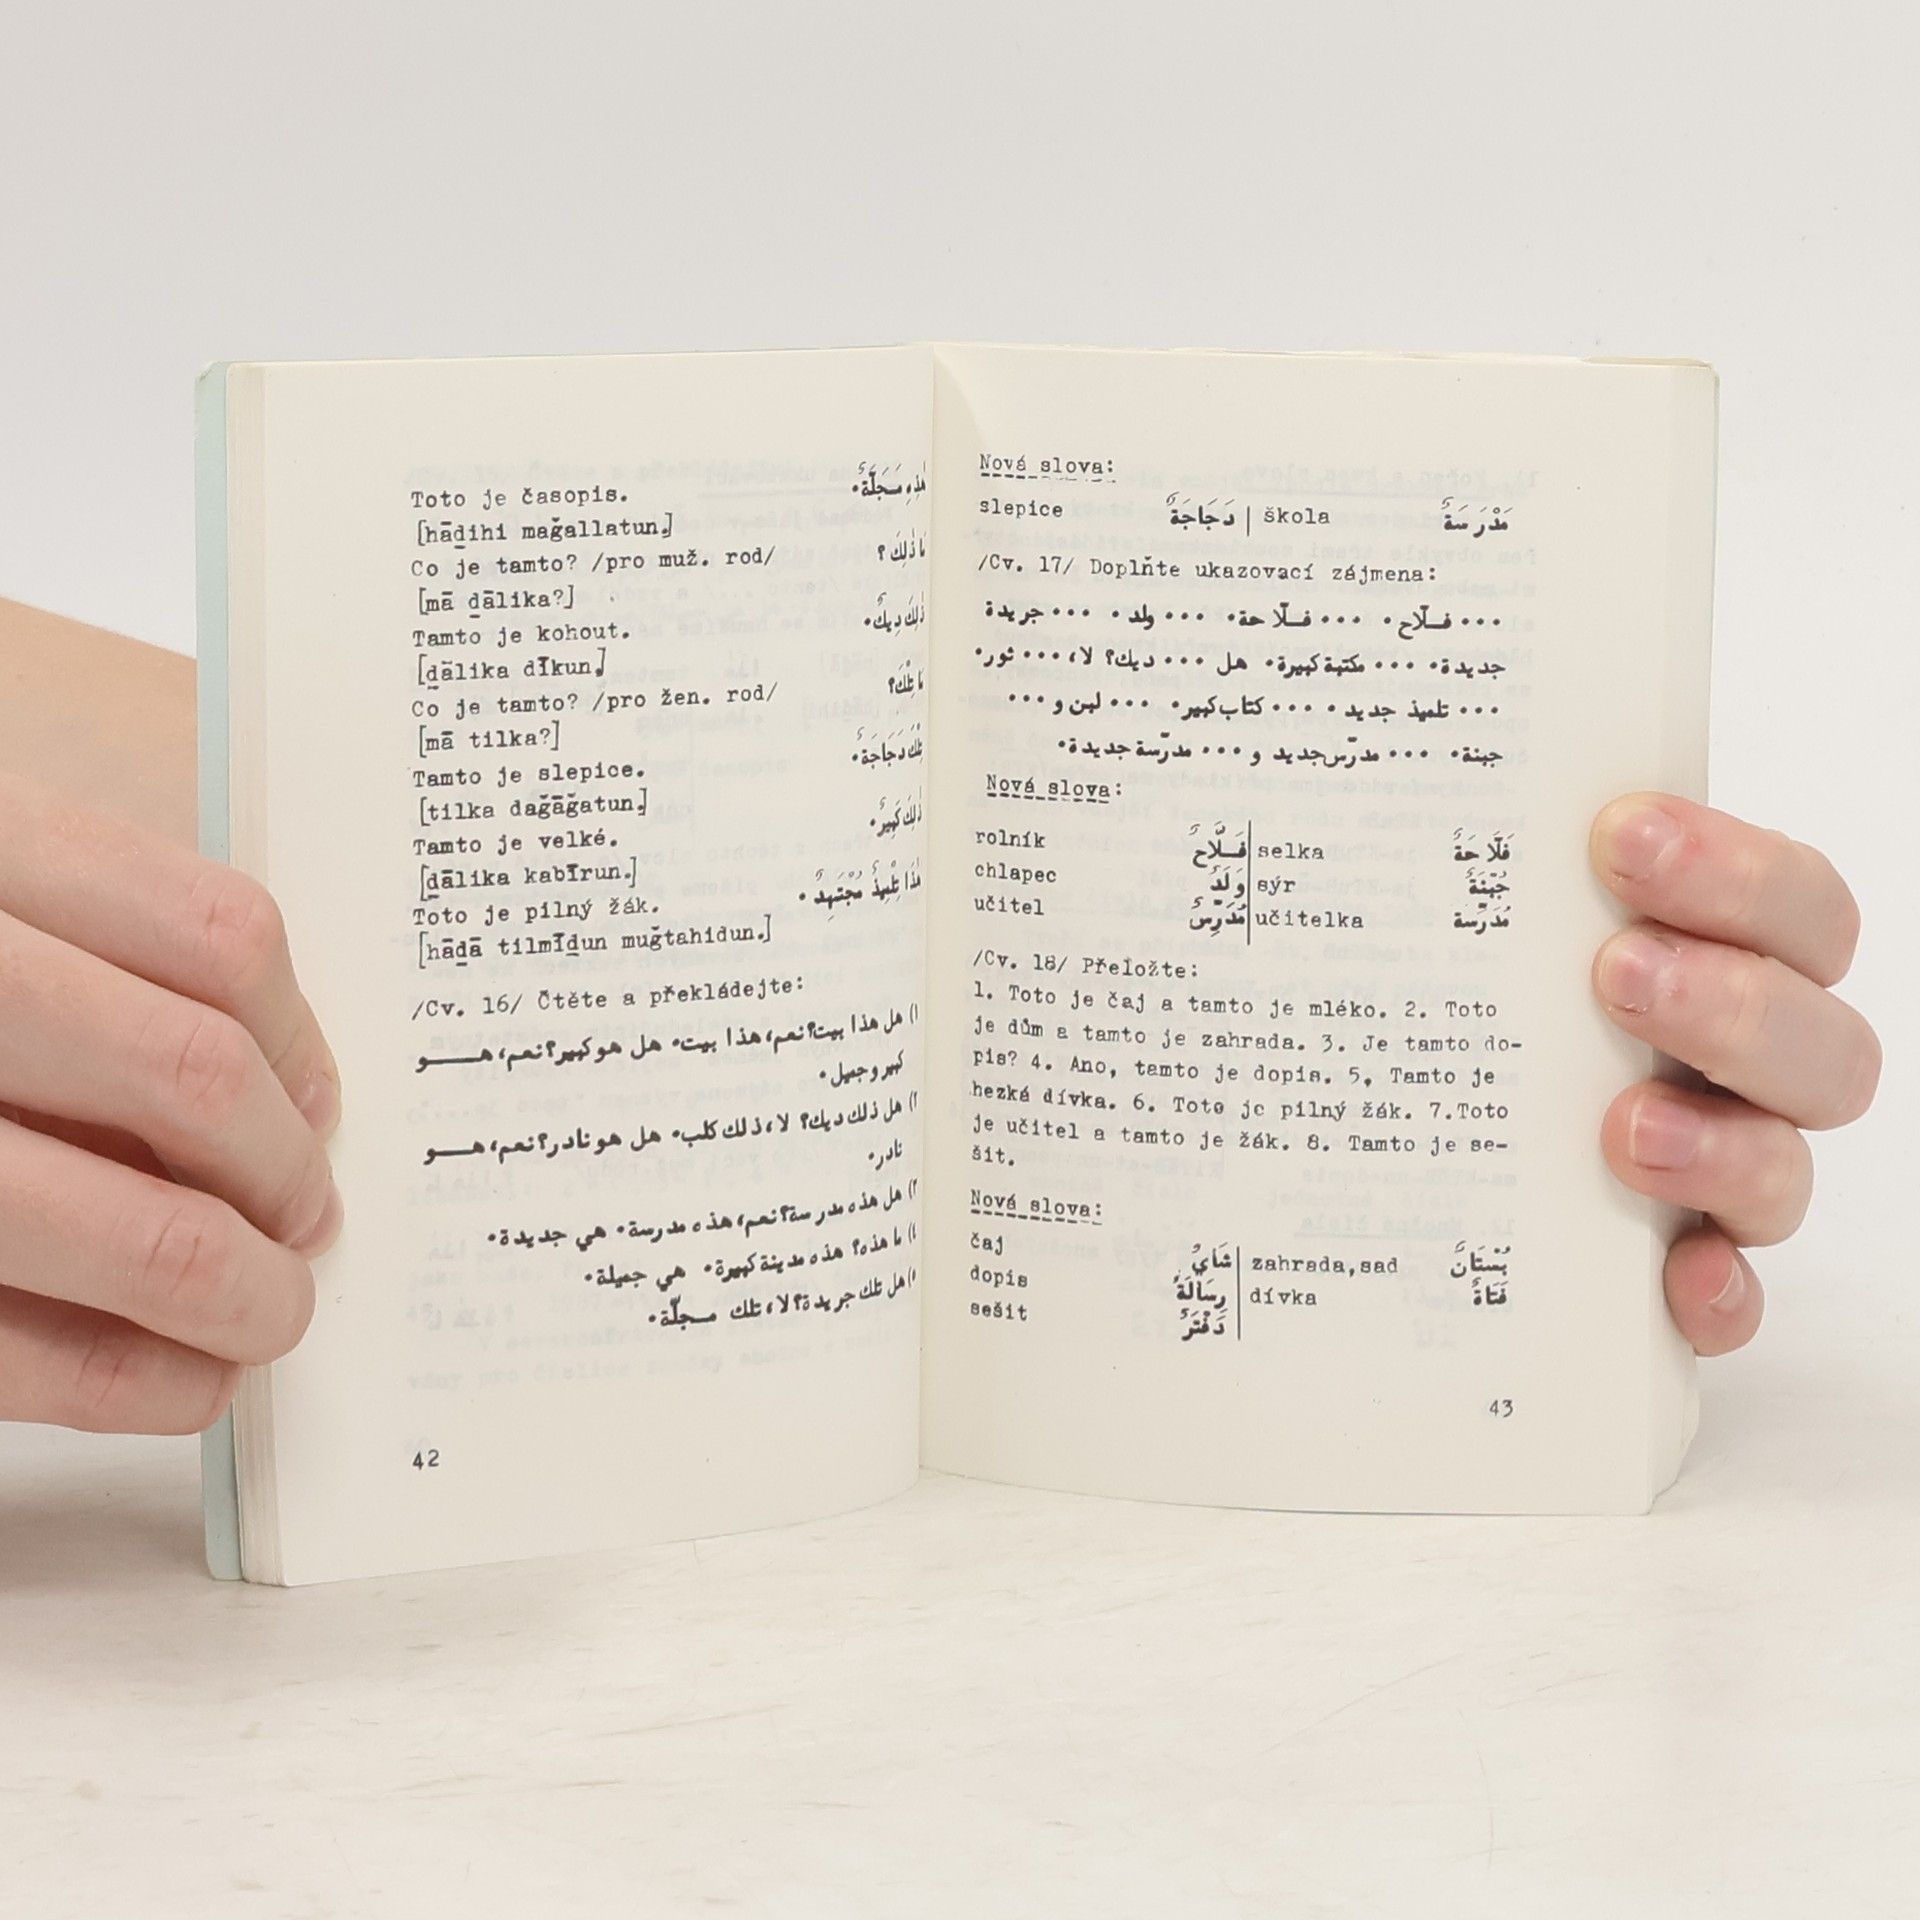 Toto je časopis. هٰذِهِ مَجَلَّةٌ.
[hāḏihi maǧallatun.]
Co je tamto? /pro muž. rod/ مَا ذٰلِكَ ؟
[mā ḏālika?]
Tamto je kohout. ذٰلِكَ دِيكٌ.
[ḏālika dīkun.]
Co je tamto? /pro žen. rod/ مَا تِلْكَ؟
[mā tilka?]
Tamto je slepice. تِلْكَ دَجَاجَةٌ.
[tilka daǧāǧatun.]
Tamto je velké. ذٰلِكَ كَبِيرٌ.
[ḏālika kabīrun.]
Toto je pilný žák. هٰذَا تِلْمِيذٌ مُجْتَهِدٌ.
[hāḏā tilmīḏun muǧtahidun.]
/Cv. 16/ Čtěte a překládejte:
١) هل هذا بيت؟ نعم، هذا بيت. هل هو كبير؟ نعم، هــو
كبير و جميل.
٢) هل ذلك ديك؟ لا، ذلك كلب. هل هو نادر؟ نعم، هــو
نادر.
٣) هل هذه مدرسة؟ نعم، هذه مدرسة. هي جديدة.
٤) ما هذه؟ هذه مدينة كبيرة. هي جميلة.
٥) هل تلك جريدة؟ لا، تلك مـجلّة.
42
Nová slova:
slepice دَجَاجَةٌ | škola مَدْرَسَةٌ
/Cv. 17/ Doplňte ukazovací zájmena:
... فـلّاح. ... فـلّاحة. ... ولد. ... جريدة
جديدة. ... مكتبة كبيرة. هل ... ديك؟ لا، ... ثور.
... تلميذ جديد. ... كتاب كبير. ... لبن و ...
جبنة. ... مدرّس جديد و ... مدرّسة جديدة.
Nová slova:
rolník فَـلَّاحٌ | selka فَلَّاحَةٌ
chlapec وَلَدٌ | sýr جُبْنَةٌ
učitel مُدَرِّسٌ | učitelka مُدَرِّسَةٌ
/Cv. 18/ Přeložte:
1. Toto je čaj a tamto je mléko. 2. Toto
je dům a tamto je zahrada. 3. Je tamto do-
pis? 4. Ano, tamto je dopis. 5. Tamto je
hezká dívka. 6. Toto je pilný žák. 7.Toto
je učitel a tamto je žák. 8. Tamto je se-
šit.
Nová slova:
čaj شَايٌ | zahrada,sad بُسْتَانٌ
dopis رِسَالَةٌ | dívka فَتَاةٌ
sešit دَفْتَرٌ
43